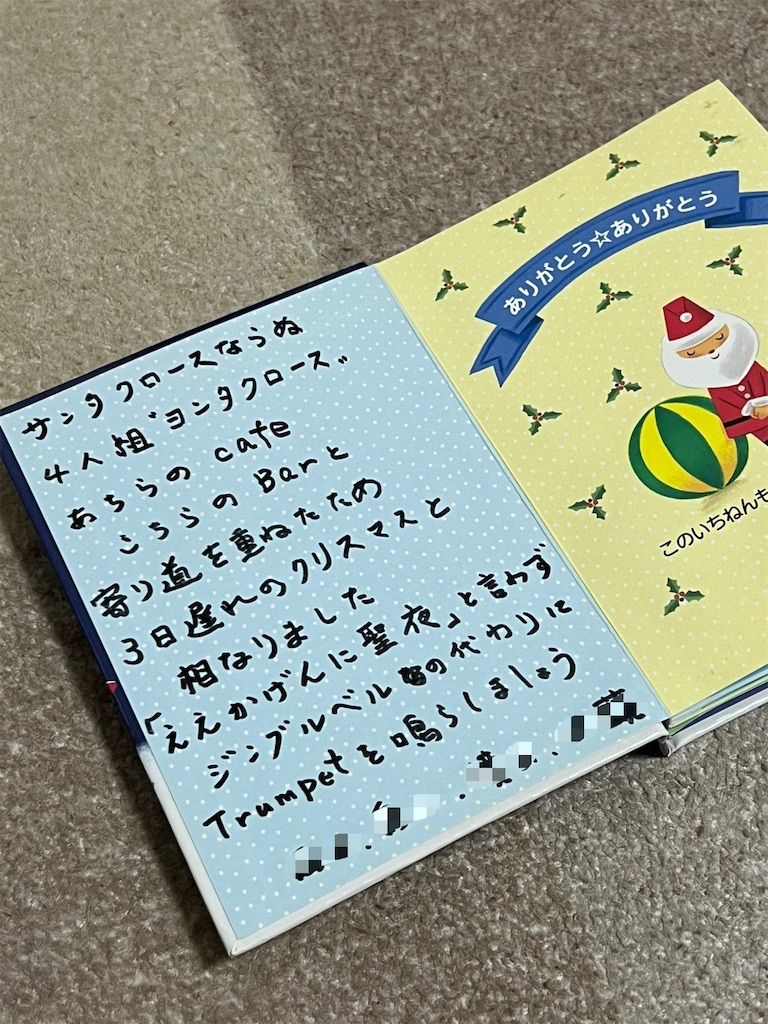 サンタクロースならぬ
4人組〝ヨンタクロース〟
あちらの cafe
こちらの Barと
寄り道を重ねたため
3日遅れのクリスマスと
相なりました
「ええかげんに聖夜」と言わず
ジングルベルの代わりに
Trumpetを鳴らしましょう
ありがとう☆ありがとう
このいちねんも